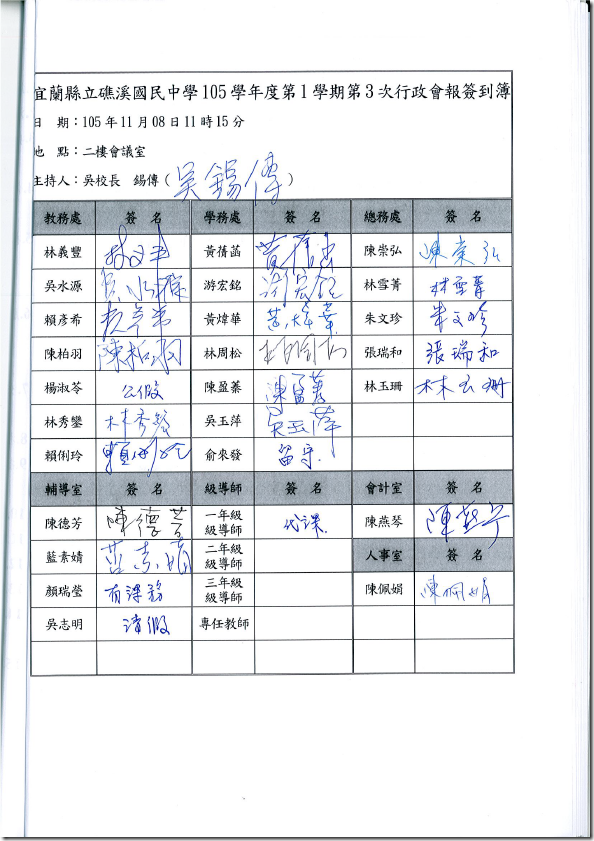 宜蘭縣立礁溪國民中學105學年度第1學期第3次行政會報簽到簿
日 期：105年11月08日11時15分
地 點：二樓會議室
主持人：吳校長 錫傳（吳錫傳）
教務處 簽 名 學務處 簽 名 總務處 簽 名
林義豐 林義豐 黃蒨菡 黃蒨菡 陳崇弘 陳崇弘
吳水源 吳水源 游宏銘 游宏銘 林雪菁 林雪菁
賴彥希 賴彥希 黃煒華 黃煒華 朱文珍 朱文珍
陳柏羽 陳柏羽 林周松 林周松 張瑞和 張瑞和
楊淑苓 公假 陳盈蓁 陳盈蓁 林玉珊 林玉珊
林秀鑾 林秀鑾 吳玉萍 吳玉萍
賴俐玲 賴俐玲 俞來發 留守
輔導室 簽 名 級導師 簽 名 會計室 簽 名
陳德芳 陳德芳 一年級級導師 代課 陳燕琴 陳燕琴
藍素婧 藍素婧 二年級級導師 人事室 簽 名
顏瑞瑩 有課務 三年級級導師 陳佩娟 陳佩娟
吳志明 請假 專任教師